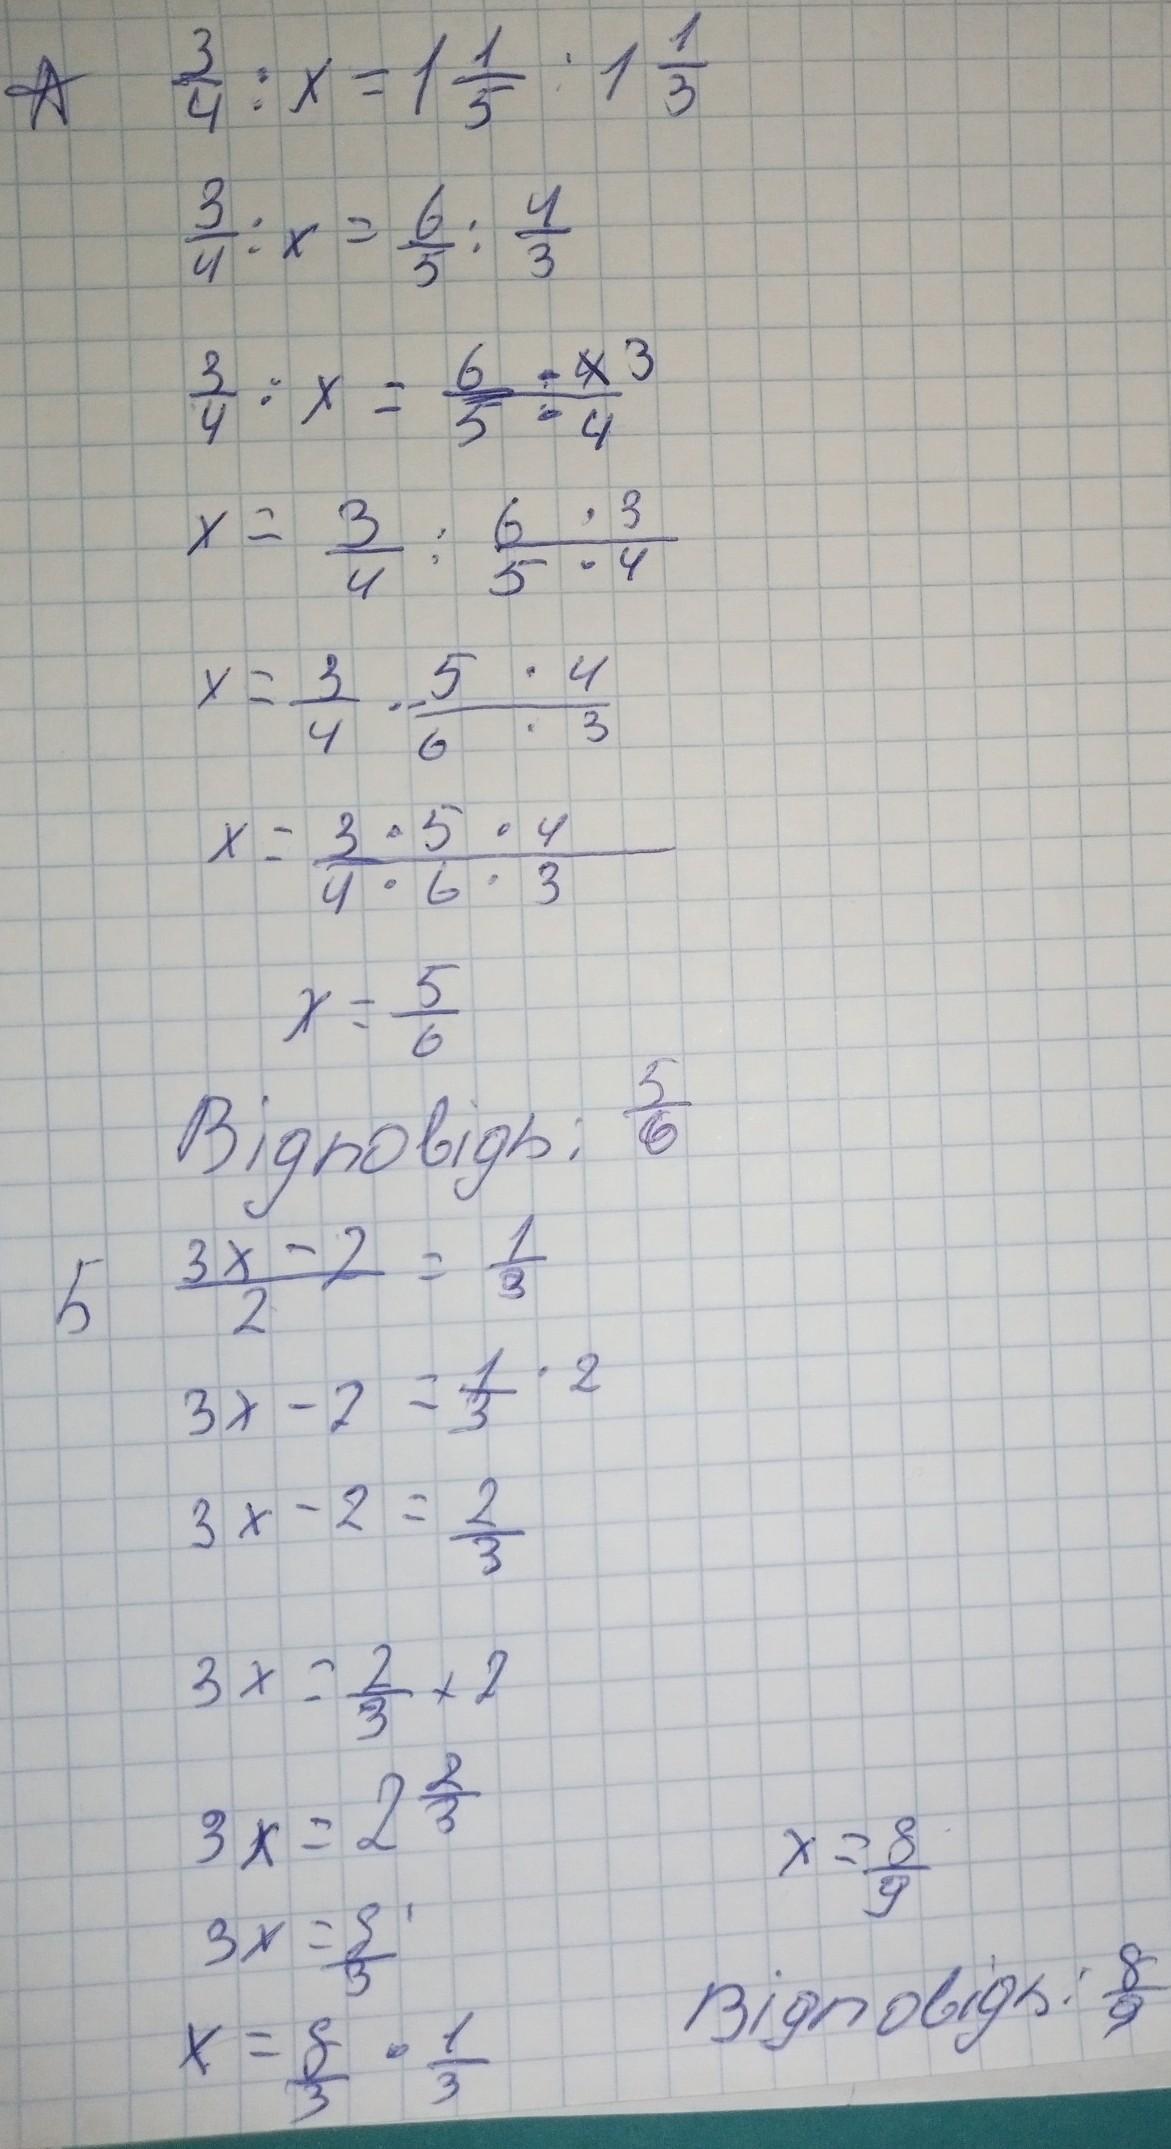 А 3/4 : x = 1 1/5 : 1 1/3
3/4 : x = 6/5 : 4/3
3/4 : x = 6 · 3 / 5 · 4
x = 3/4 : 6 · 3 / 5 · 4
x = 3/4 · 5 · 4 / 6 · 3
x = 3 · 5 · 4 / 4 · 6 · 3
x = 5/6
Відповідь: 5/6
Б 3x - 2 / 2 = 1/3
3x - 2 = 1/3 · 2
3x - 2 = 2/3
3x = 2/3 + 2
3x = 2 2/3
3x = 8/3
x = 8/3 · 1/3
x = 8/9
Відповідь: 8/9